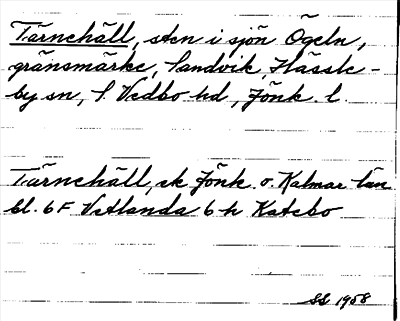 Tärnehäll, sten i sjön Ögeln,
gränsmärke, Sandvik, Hässle-
by sn, S. Vedbo hd, Jönk. l.
Tärnehäll, ek Jönk. o. Kalmar län
bl. 6 F Vetlanda 6 h Katebo
SS 1958